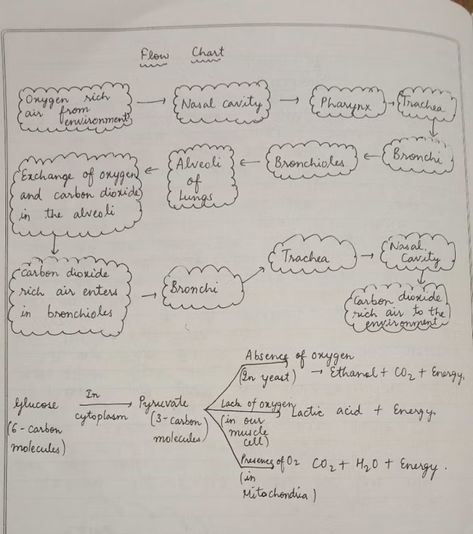 Flow Chart
Oxygen rich
air from
environment
Nasal cavity
Pharynx
Trachea
Bronchi
Bronchioles
Alveoli
of
Lungs
Exchange of oxygen
and carbon dioxide
in the alveoli
Carbon dioxide
rich air enters
in bronchioles
Bronchi
Trachea
Nasal
Cavity
Carbon dioxide
rich air to the
environment
Glucose
(6-carbon
molecules)
In
cytoplasm
Pyruvate
(3-carbon
molecules)
Absence of oxygen
(In yeast) → Ethanol + CO2 + Energy.
Lack of oxygen
(in our
muscle
cell)
Lactic acid + Energy.
Presence of O2
(in
Mitochondria)
CO2 + H2O + Energy.